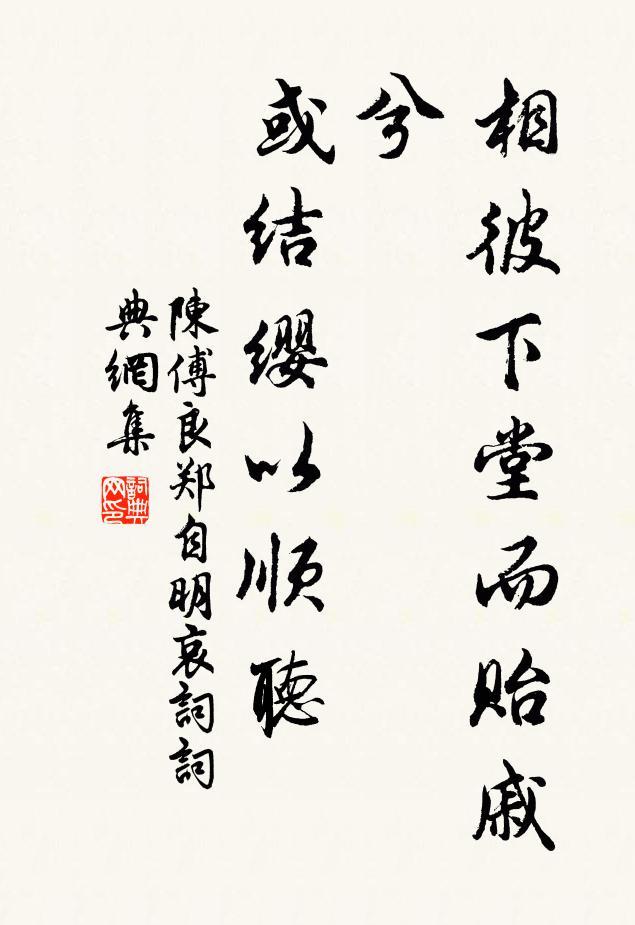 相彼下堂而贻戚
兮
或结缨以顺聽
陳傅良郑自明哀詞詞
典網集
詞典网印